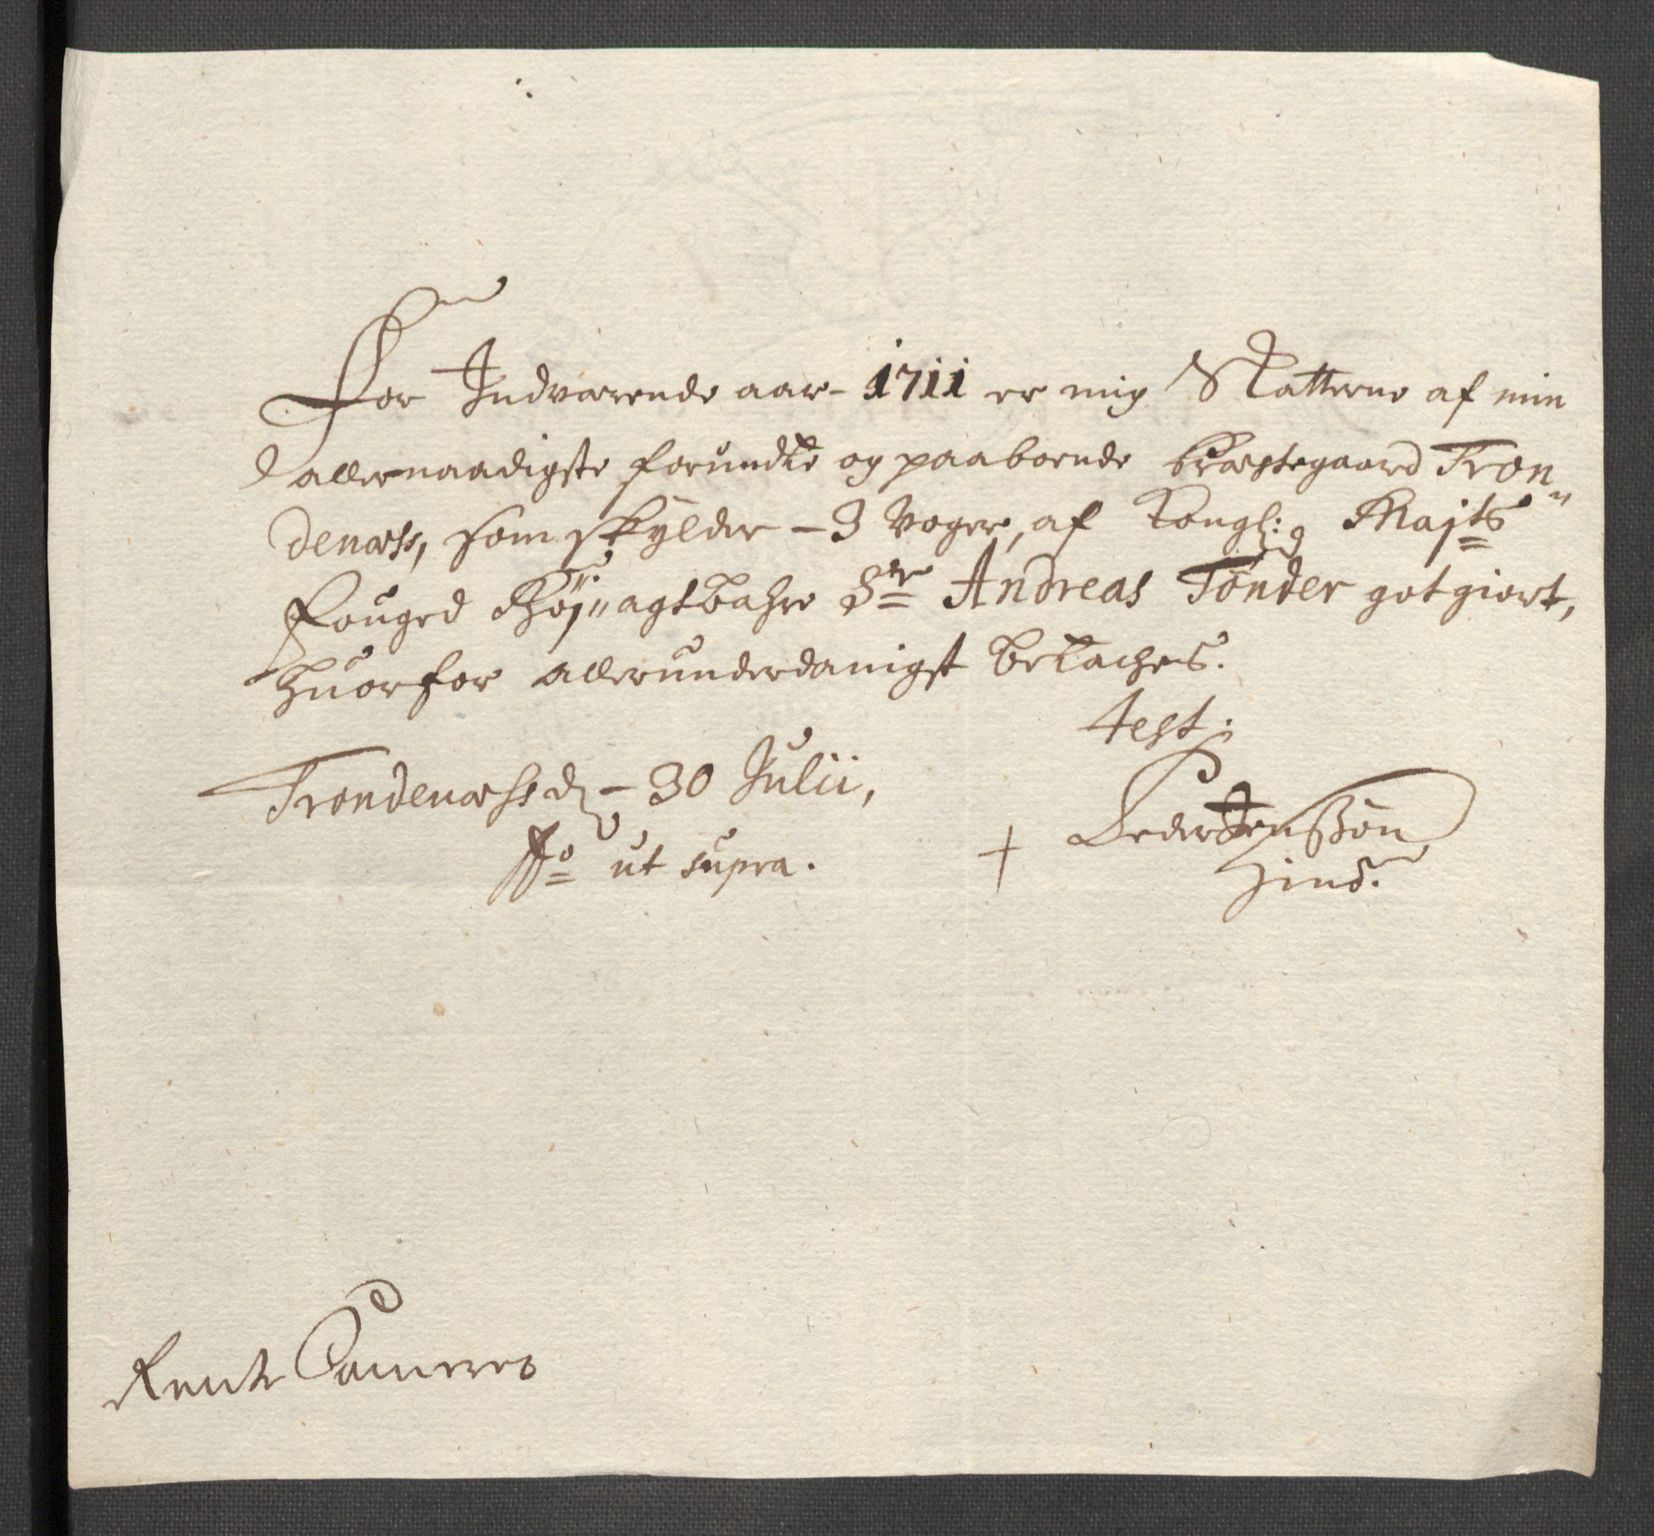 For Indværende aar 1711 er mig Skatterne af min
allernaadigste forundte og paaboende Præstegaard Tron„
denæss, som skylder - 3 Voger, af Kongl: Majts
Fouged Høj„agtbahre Sr Andreas Tønder gotgiort,
huorfor allerunderdanigst betaches.
test:
Trondenæss d - 30 Julii,
Ao ut supra.
Peder Jenssøn
Hind.
Rente Cammeret